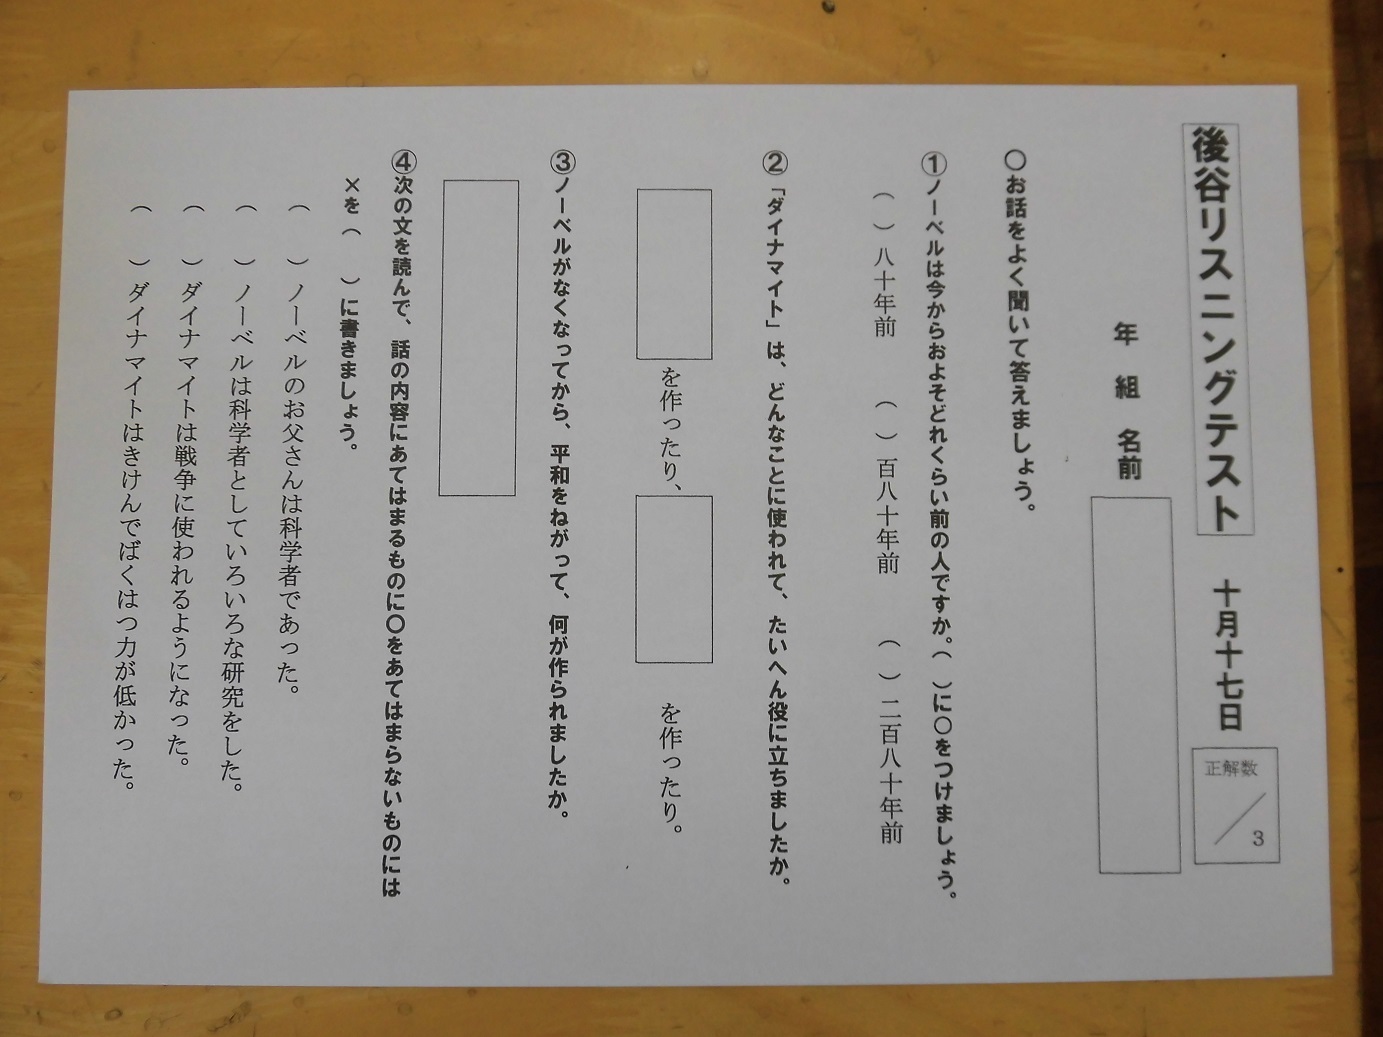 後谷リスニングテスト 十月十七日
正解数
3
年 組 名前
〇お話をよく聞いて答えましょう。
①ノーベルは今からおよそどれくらい前の人ですか。( )に〇をつけましょう。
( )八十年前 ( )百八十年前 ( )二百八十年前
②「ダイナマイト」は、どんなことに使われて、たいへん役に立ちましたか。
を作ったり、 を作ったり。
③ノーベルがなくなってから、平和をねがって、何が作られましたか。
④次の文を読んで、話の内容にあてはまるものに〇をあてはまらないものには
×を( )に書きましょう。
( )ノーベルのお父さんは科学者であった。
( )ノーベルは科学者としていろいろな研究をした。
( )ダイナマイトは戦争に使われるようになった。
( )ダイナマイトはきけんでばくはつ力が低かった。